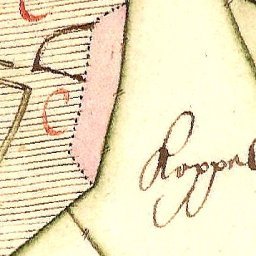 C
C
Koppel